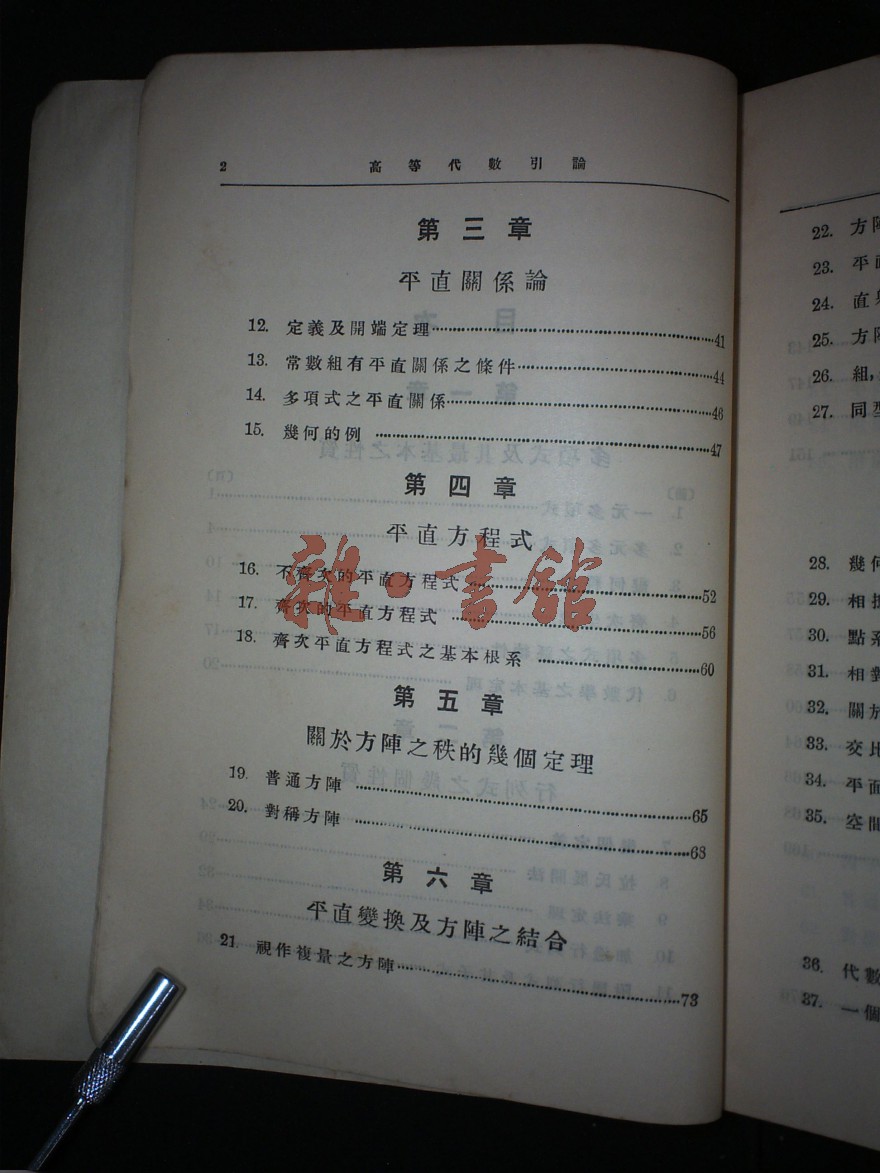 2 高等代數引論
第三章
平直關係論
12. 定義及開端定理 41
13. 常數組有平直關係之條件 44
14. 多項式之平直關係 46
15. 幾何的例 47
第四章
平直方程式
16. 不齊次的平直方程式 52
17. 齊次的平直方程式 56
18. 齊次平直方程式之基本根系 60
第五章
關於方陣之秩的幾個定理
19. 普通方陣 65
20. 對稱方陣 68
第六章
平直變換及方陣之結合
21. 視作複量之方陣 73
雜·書館
22. 方陣
23. 平直
24. 直
25. 方陣
26. 組,
27. 同型
28. 幾何
29. 相
30. 點系
31. 相對
32. 關於
33. 交比
34. 平面
35. 空間
36. 代數
37. 一個